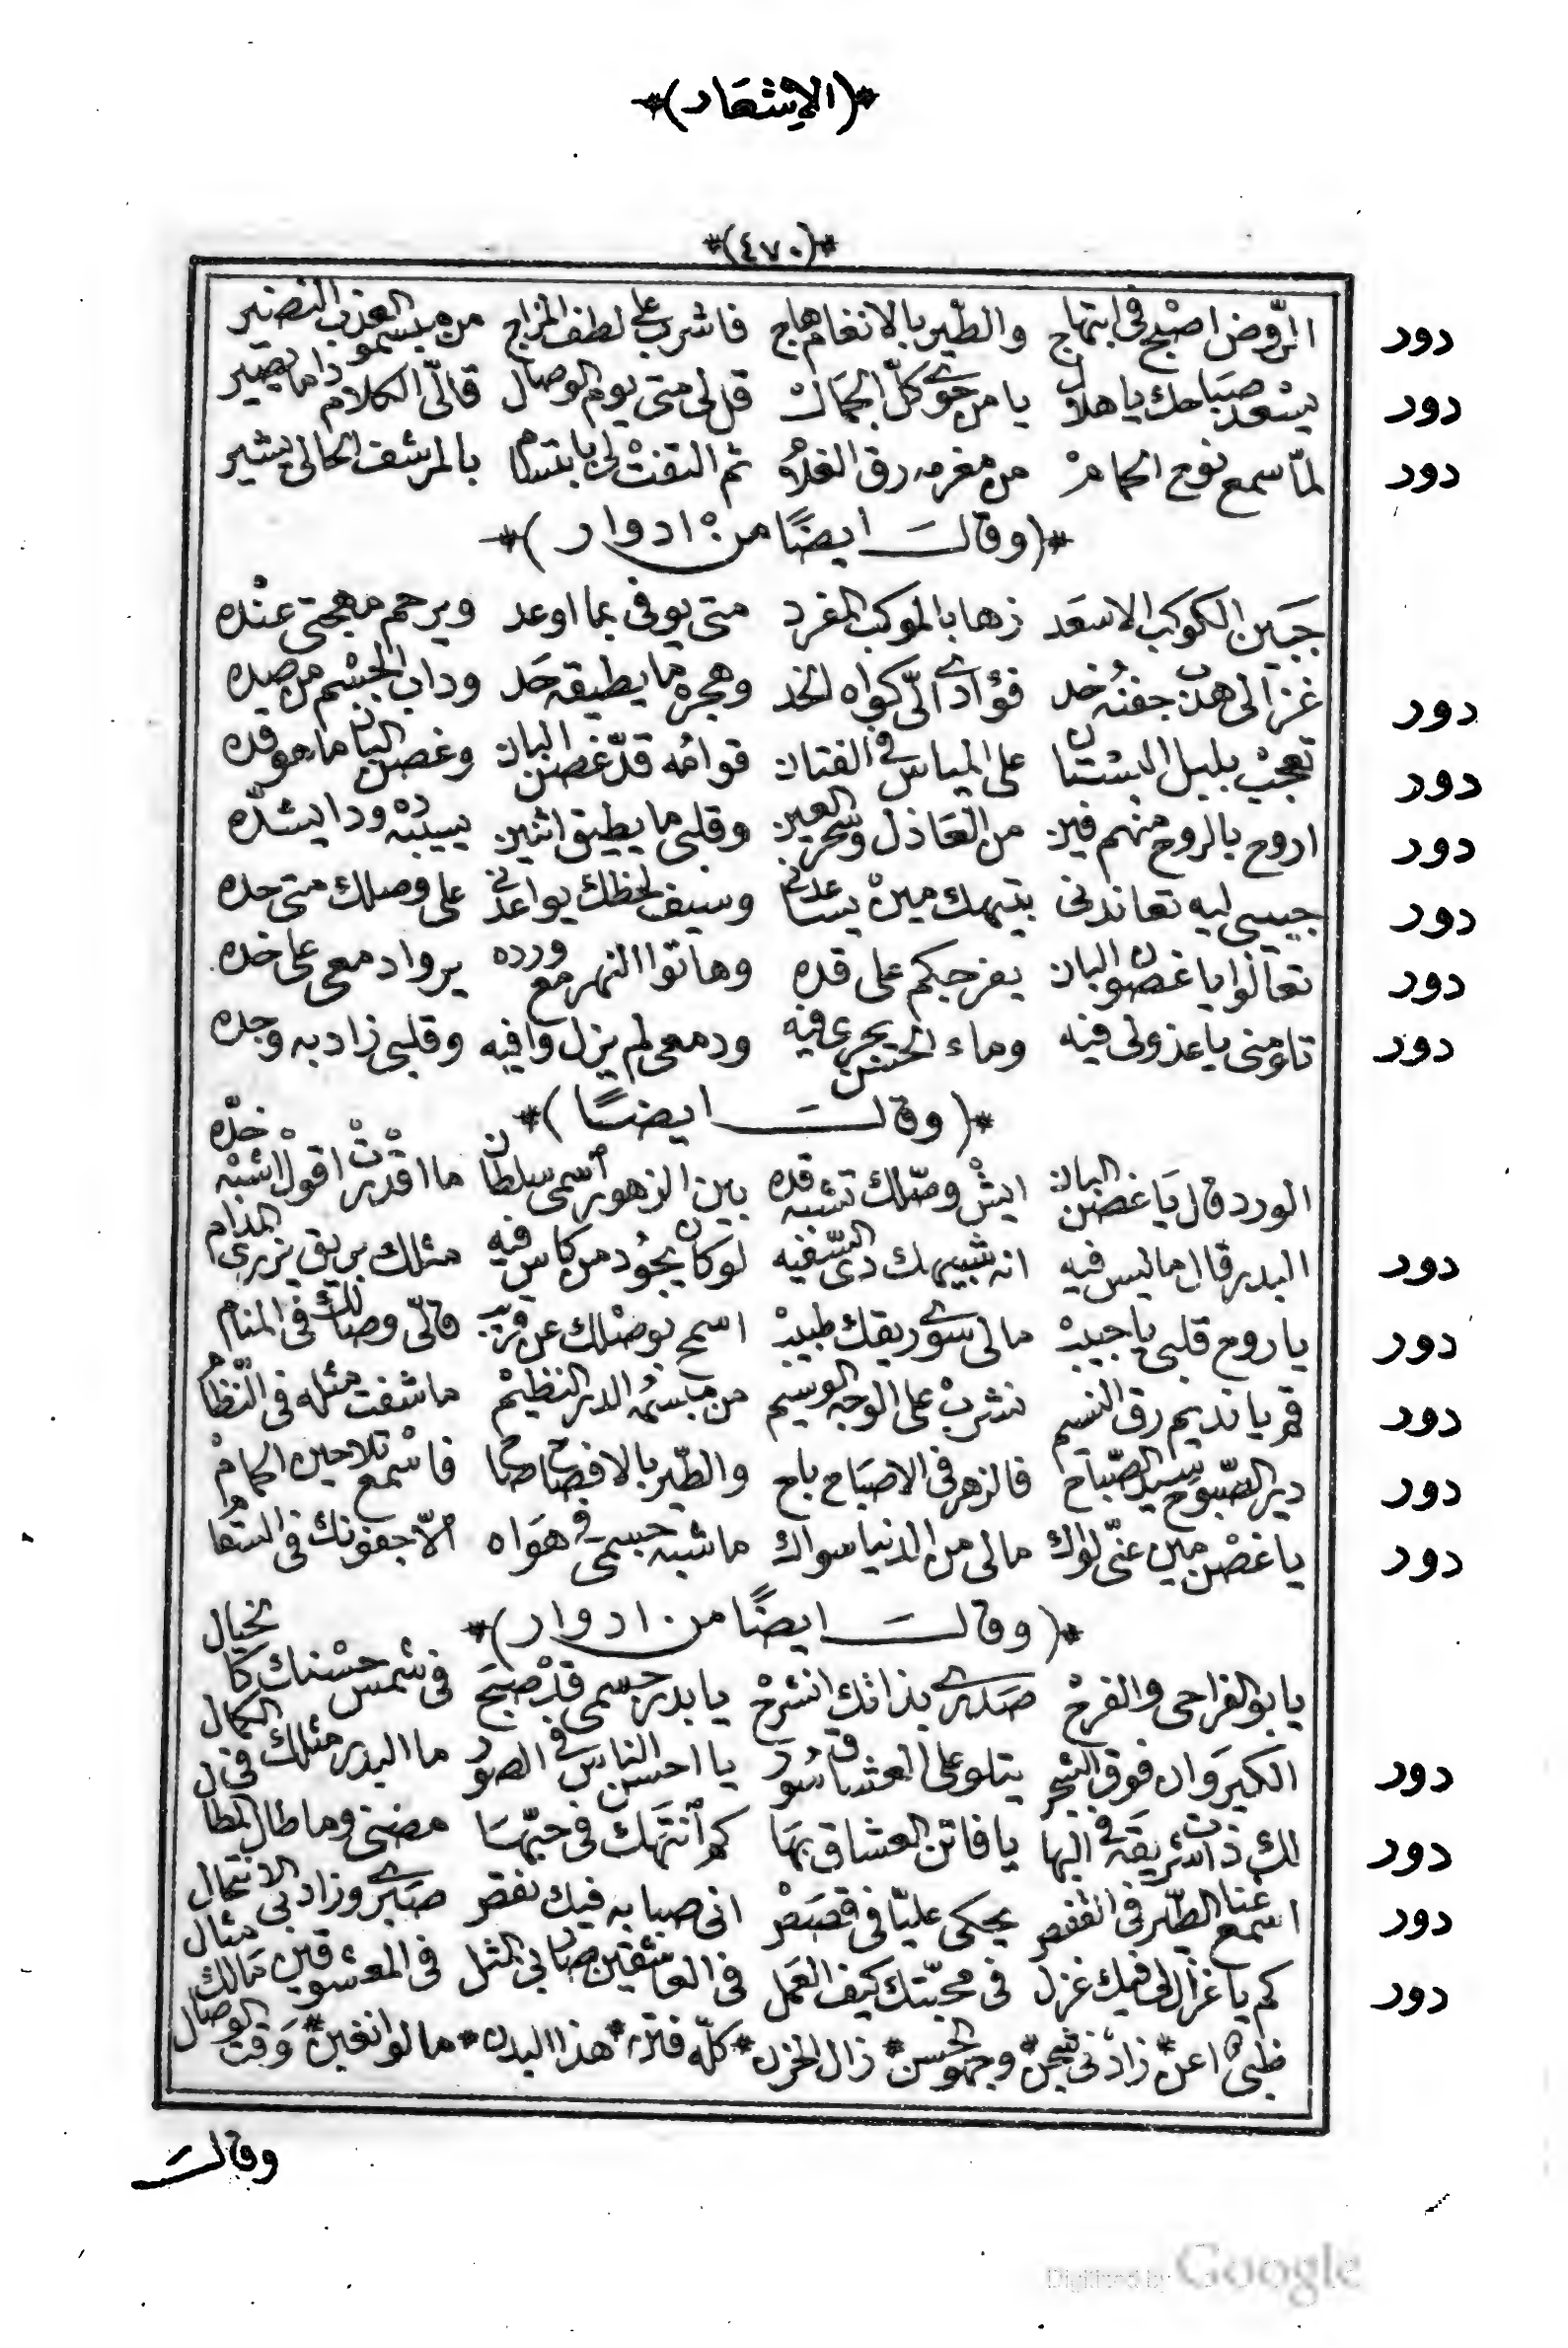 *(الاشعار)*
*(٤٧٠)*
دور الرّوض اصبح فى ابتهاج والطّير بالانغام هاج فاشرب على لطف المزاج من مبسمو العذب النضير
دور يسْعد صبَاحك يا هلال يا من حوى كلّ الجمال قل لى متى يوم الوصال قالّى الكلام دا ما يصير
دور لمّا سمع نوح الحمام من مغرمه رق الغلام ثم التفتْ لى بابتسام بالمرشف الحالى يشير
*(وقالت ايضًا من ادوار)*
جَبَين الكوكب الاسعَد زها بالموكب المفرد متى يوفى بما اوعد ويرحم مهجتى عنْده
دور غزالى هدّ جفنُه خد فؤادى الّى كواه الخد وهجره ما يطيقه حَد وداب الجسْم من صده
دور تعجبْ بلبل البستان على المياس فى الفتان قوامُه قدّ غصن البان وغصن البان ما هو قده
دور اروح بالروح منهم فين من العَاذل وسحر العين وقلبى ما يطيق اثنين يسيبْه ده ودا يشدّه
دور حبيبى ليه تعاندنى بتيهك مينْ يساعدنى وسيف لحظك يواعدنى على وصلك متى حده
دور تعالوا يا غصون البان يفرجكم على قده وهاتوا النهر مع ورده يروا دمعى على خده
دور تلومنى يا عذولى فيه وماء الحسْن يجرى فيه ودمعى لم يزل وافيه وقلبى زاد به وجده
*(وقالت ايضًا)*
الورد قال يَا غصْن البان ايشْ وصّلك تشبه قده بين الزهور اسمى سلطان ما اقْدرْتْ اقولْ اشبْه خدّه
دور البدر قال ما ليس فيه انه شبيهك دى السّفيه لو كان يجُود من كاس فيه مثلك بريق يزرى المدام
دور يا روح قلبى يا حبيبْ مالى سوى ريقك طبيبْ اسمح بوصْلك عن قريبْ قالّى وصالك فى المنام
دور قم يا نديم رق النسيم نشربْ على الوجه الوسيم من مبسمُه الدر النظيمْ ما شفت مثله فى النّظام
دور دير الصّبوح سيد الصّباح فالزهر فى الاصبَاح باح والطّير بالافصاح صاح فاسْمع تلاحين الحمامْ
دور يا غصْن مين عنّى لواك مالى من الدنيا سواك ما شبه جسمى فى هوَاه الّا جفونك فى السقام
*(وقالت ايضًا من ادوار)*
يا بو الفراحى والفرحْ صَدرى بذاتك انشرحْ يا بدر جسمى قدْ صبحَ فى شمس حسْنك كالخيال
دور الكيروَان فوق الشجر يتلو على العشاق سُور يا احسن الناس فى الصور ما البدر مثلك فى الكمال
دور لك ذات شريقة فى البها يا فاتن العشاق بهَا كم انتَهك فى حبّها مضنى وما طال المطال
دور اسمع غنا الطّير فى القفص يحكى عليّا فى قصَصْ انى صبابه فيك نقص صَبرى وزاد بى الانتحال
دور كم يا غزالى فيك غزل فى محبّتك كيف العَمل فى العاشقين صار بى المثل فى المعشوقين مَالك مثال
ظبى اغن * زادنى شجن * وجهو حسن * زال الحزن * كلّه فتن * هذا البدن * ما لوا نغبن * وَقت الوصال
وقالت
Digitized by Google